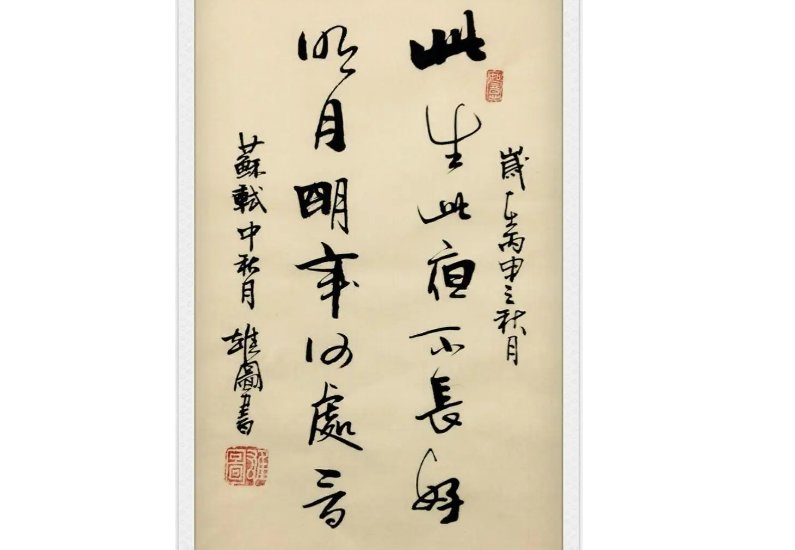 歲在丙申之秋月
此生此夜不長好
明月明年何處看
蘇軾中秋月 雄圖書